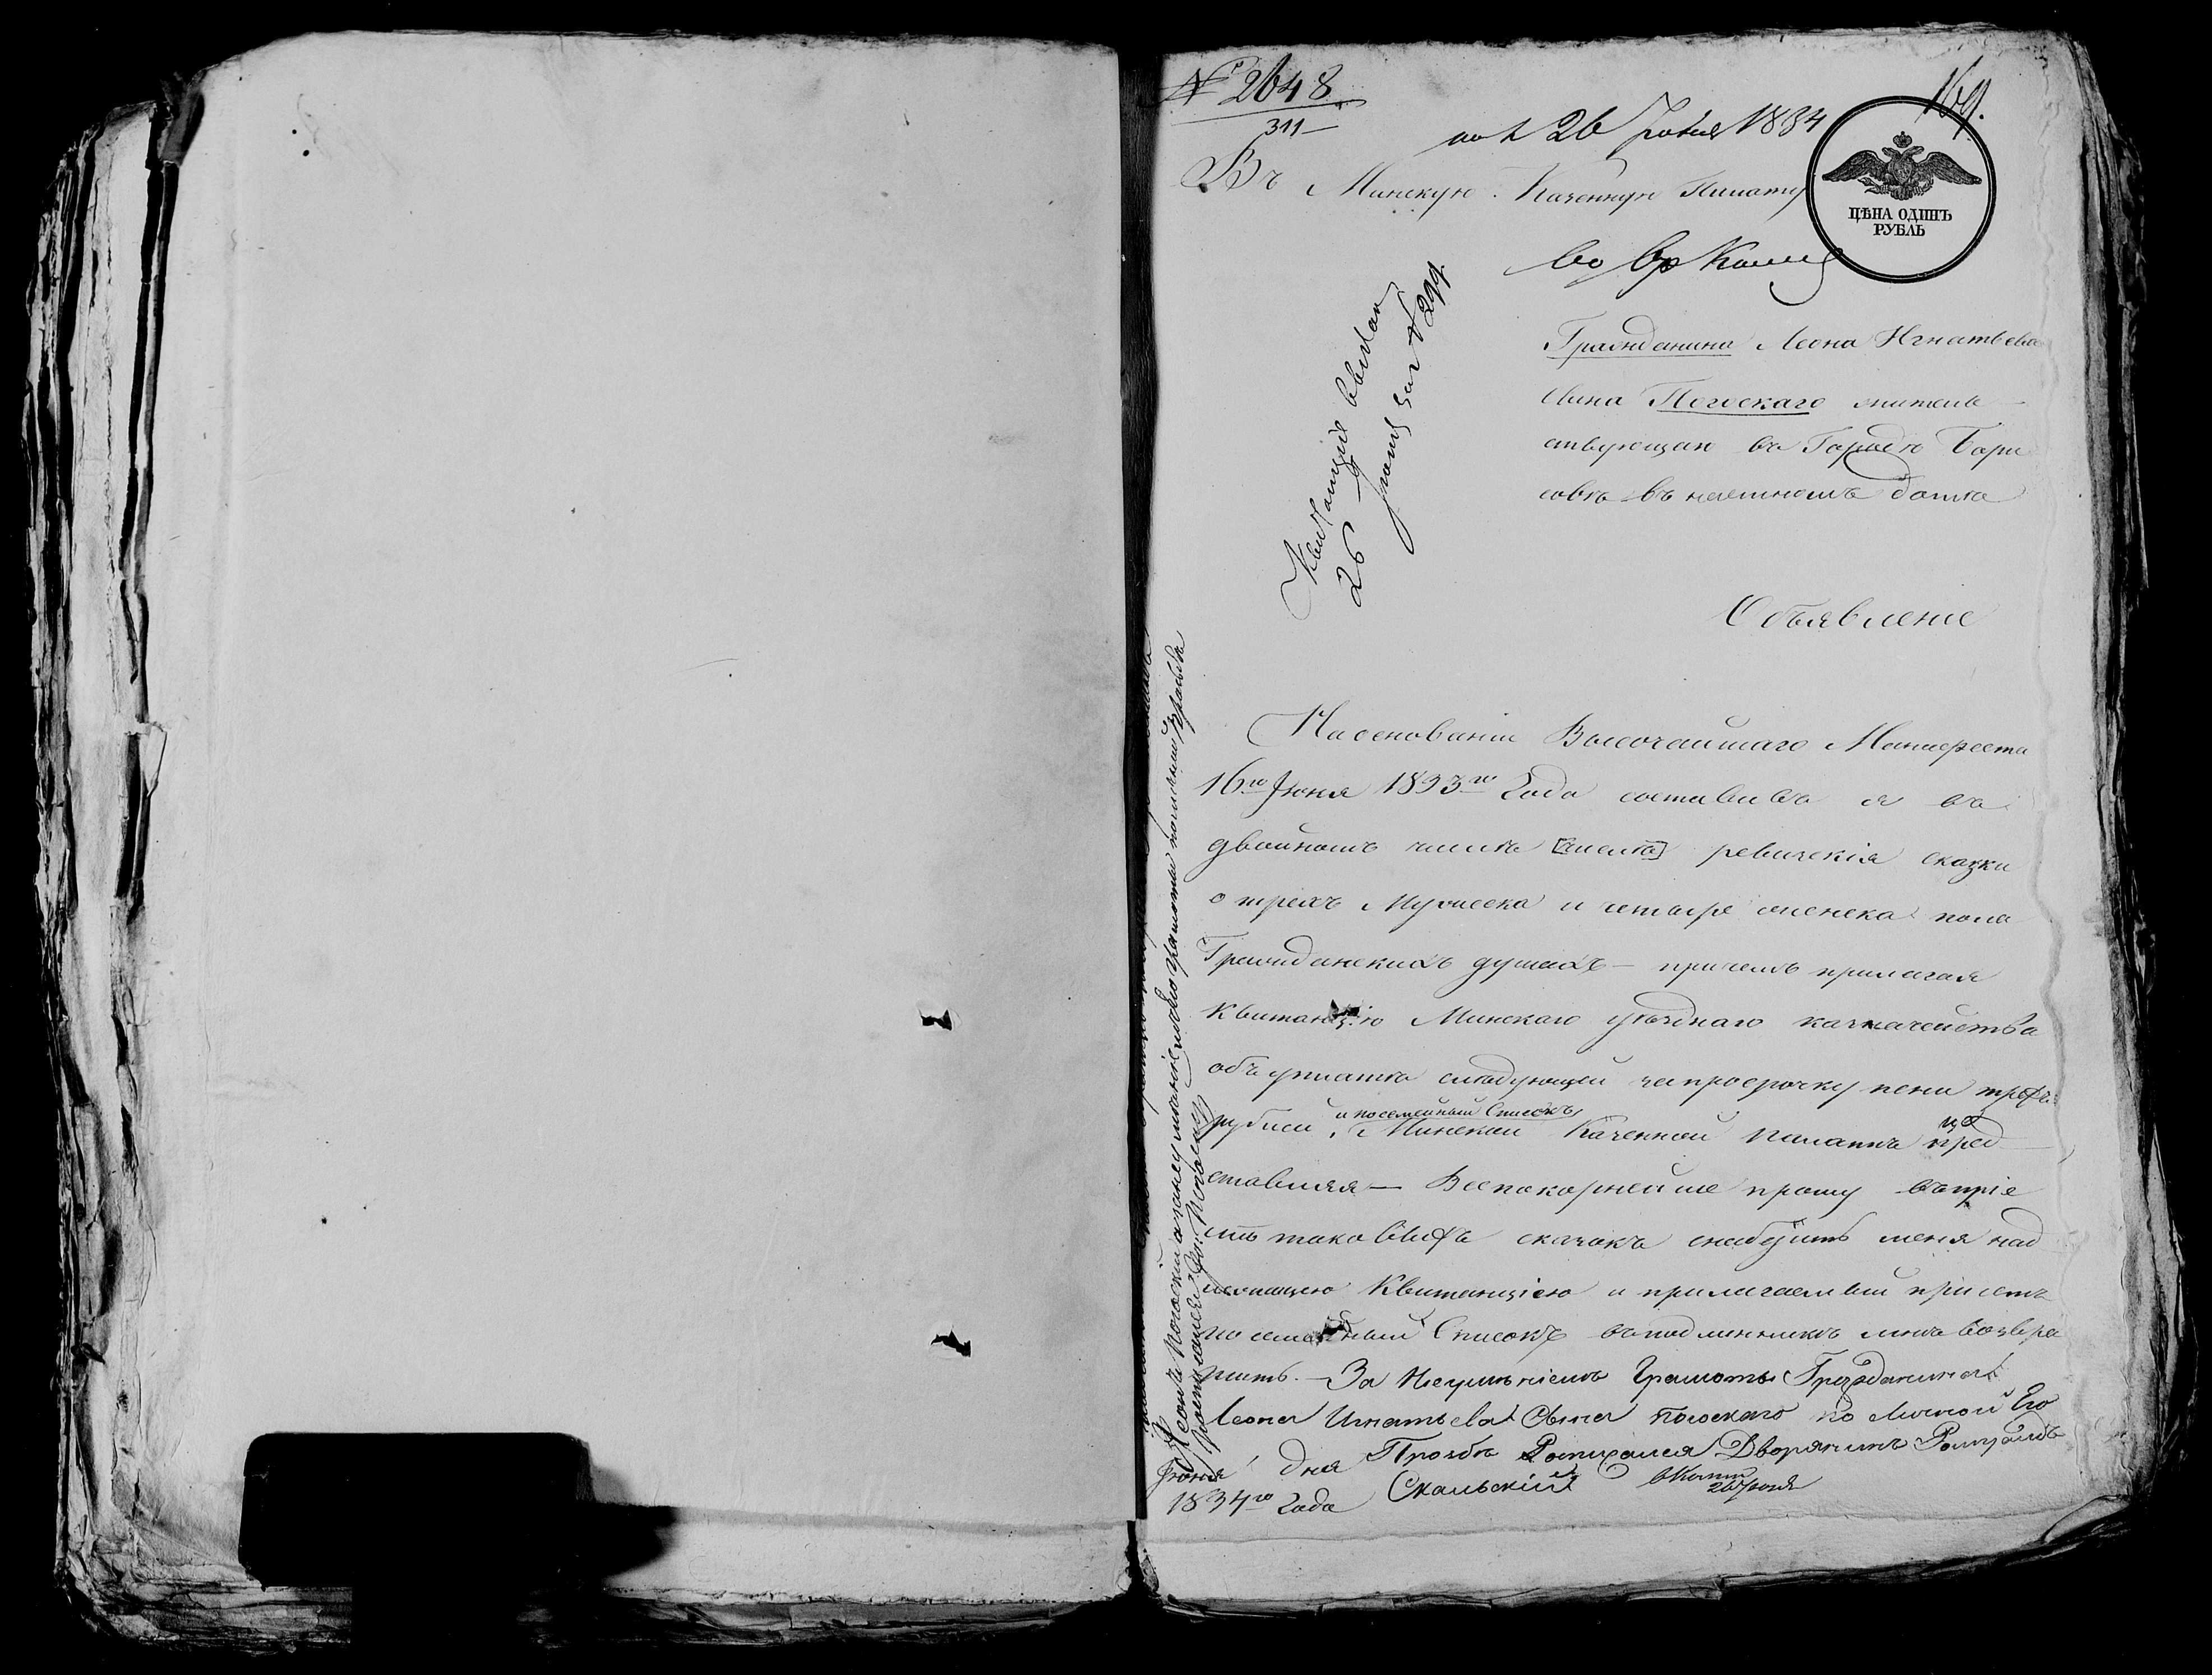 № 2648
311
169.
26 Июня 1834
Въ Минскую Казенную Палату
ЦѢНА ОДИНЪ
РУБЛЬ
Гражданина Леона Игнатьева
сына Погоскаго жительствующаго
въ Городѣ Бори
совѣ въ наемномъ домѣ
Квитанція выдан
26 Іюня за № 299
Объявленіе
На основаніи Высочайшаго Манифеста
16го Іюня 1833го Года составивъ я въ
двойномъ числѣ [числѣ] ревизскія сказки
о трехъ Мужеска и четыре женска пола
Гражданскихъ душахъ — причемъ прилагая
Квитанцію Минскаго уѣзднаго казначейства
объ уплатѣ слѣдующей за просрочку пени трехъ
и посемейный Списокъ
рублей, Минской Казенной Палатѣ пред
ставляя — Всепокорнейше прошу въ пріе
мѣ таковыхъ сказокъ снабдить меня над
лежащею Квитанціею и прилагаемый при семъ
посемейный Списокъ въ подлинникѣ мнѣ возвра
тить. — За Неумѣніемъ Грамоты Гражданина
Леона Игнатьева Сына Погоскаго по личной Его
Прозбѣ Росписался Дворянинъ Ромуальдъ
Скальскій
Іюня дня
1834го Года
26 Іюня